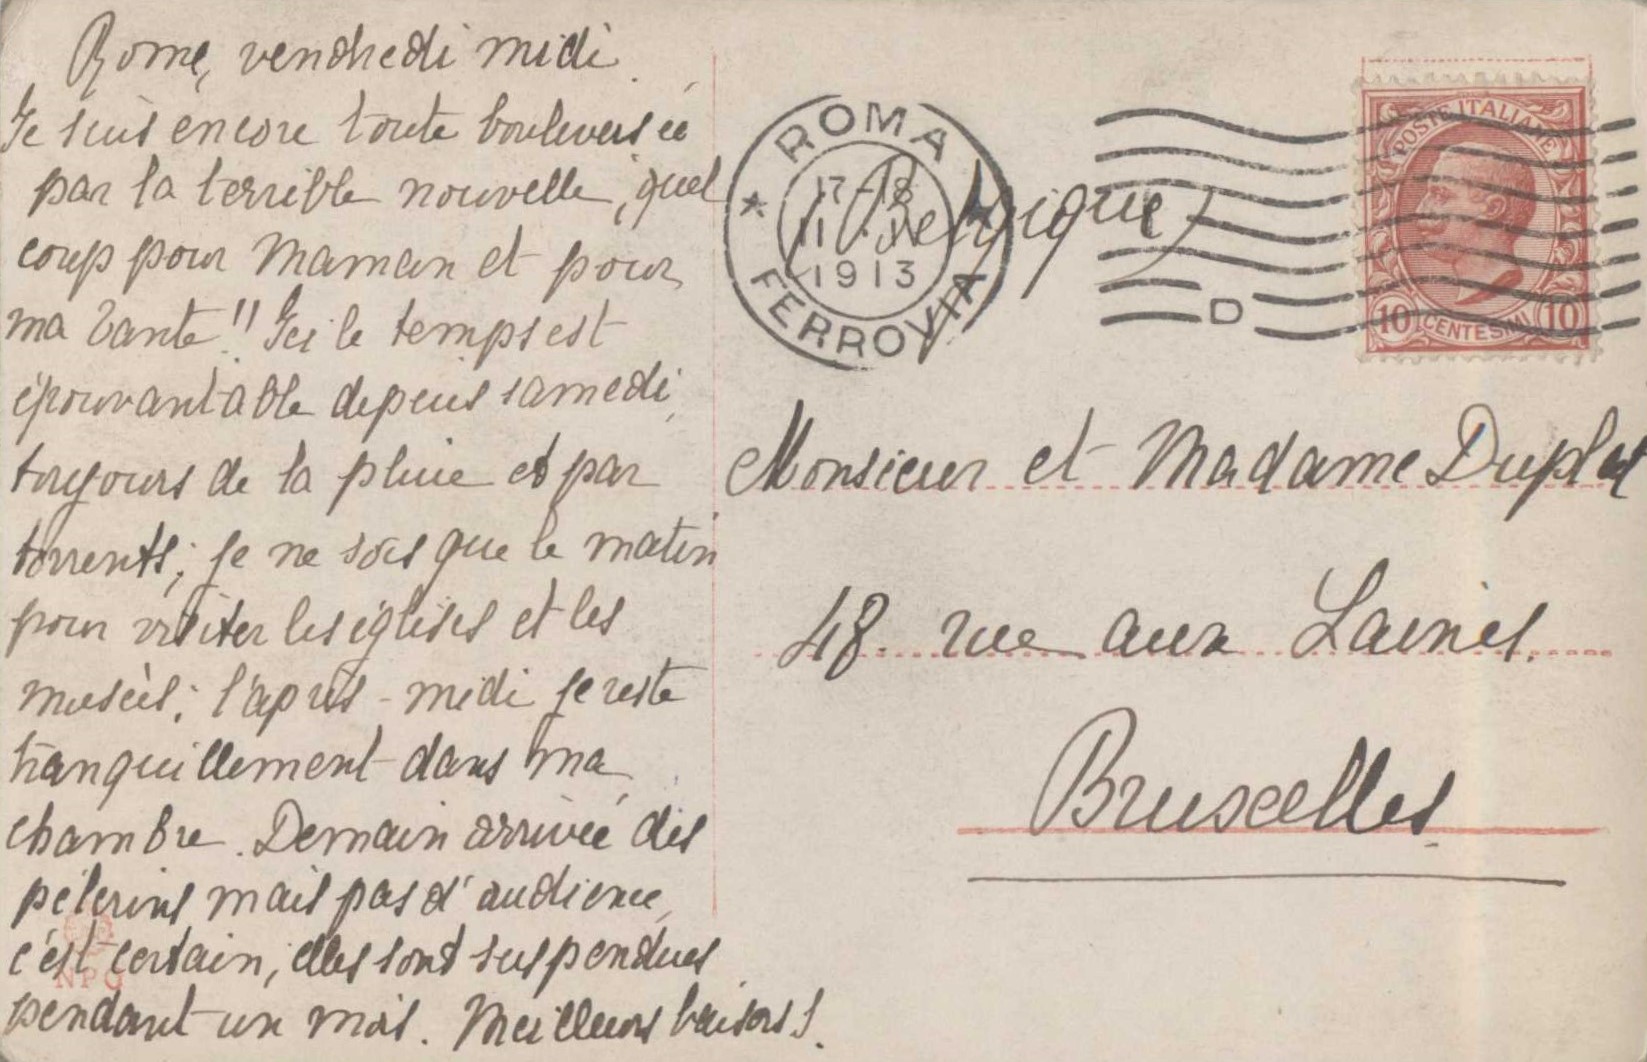 Rome, vendredi midi.
Je suis encore toute bouleversée
par la terrible nouvelle, quel
coup pour Maman et pour
ma Tante!! Ici le temps est
épouvantable depuis samedi,
toujours de la pluie et par
torrents; je ne sors que le matin
pour visiter les églises et les
musées; l'après-midi je reste
tranquillement dans ma
chambre. Demain arrivée des
pèlerins mais pas d'audience,
c'est certain, elles sont suspendues
pendant un mois. Meilleurs baisers!
NPG
ROMA
17-18
1913
FERROVIA
D
POSTE ITALIANE
10 CENTESIMI 10
Belgique
Monsieur et Madame
48. rue aux Laines.
Bruxelles